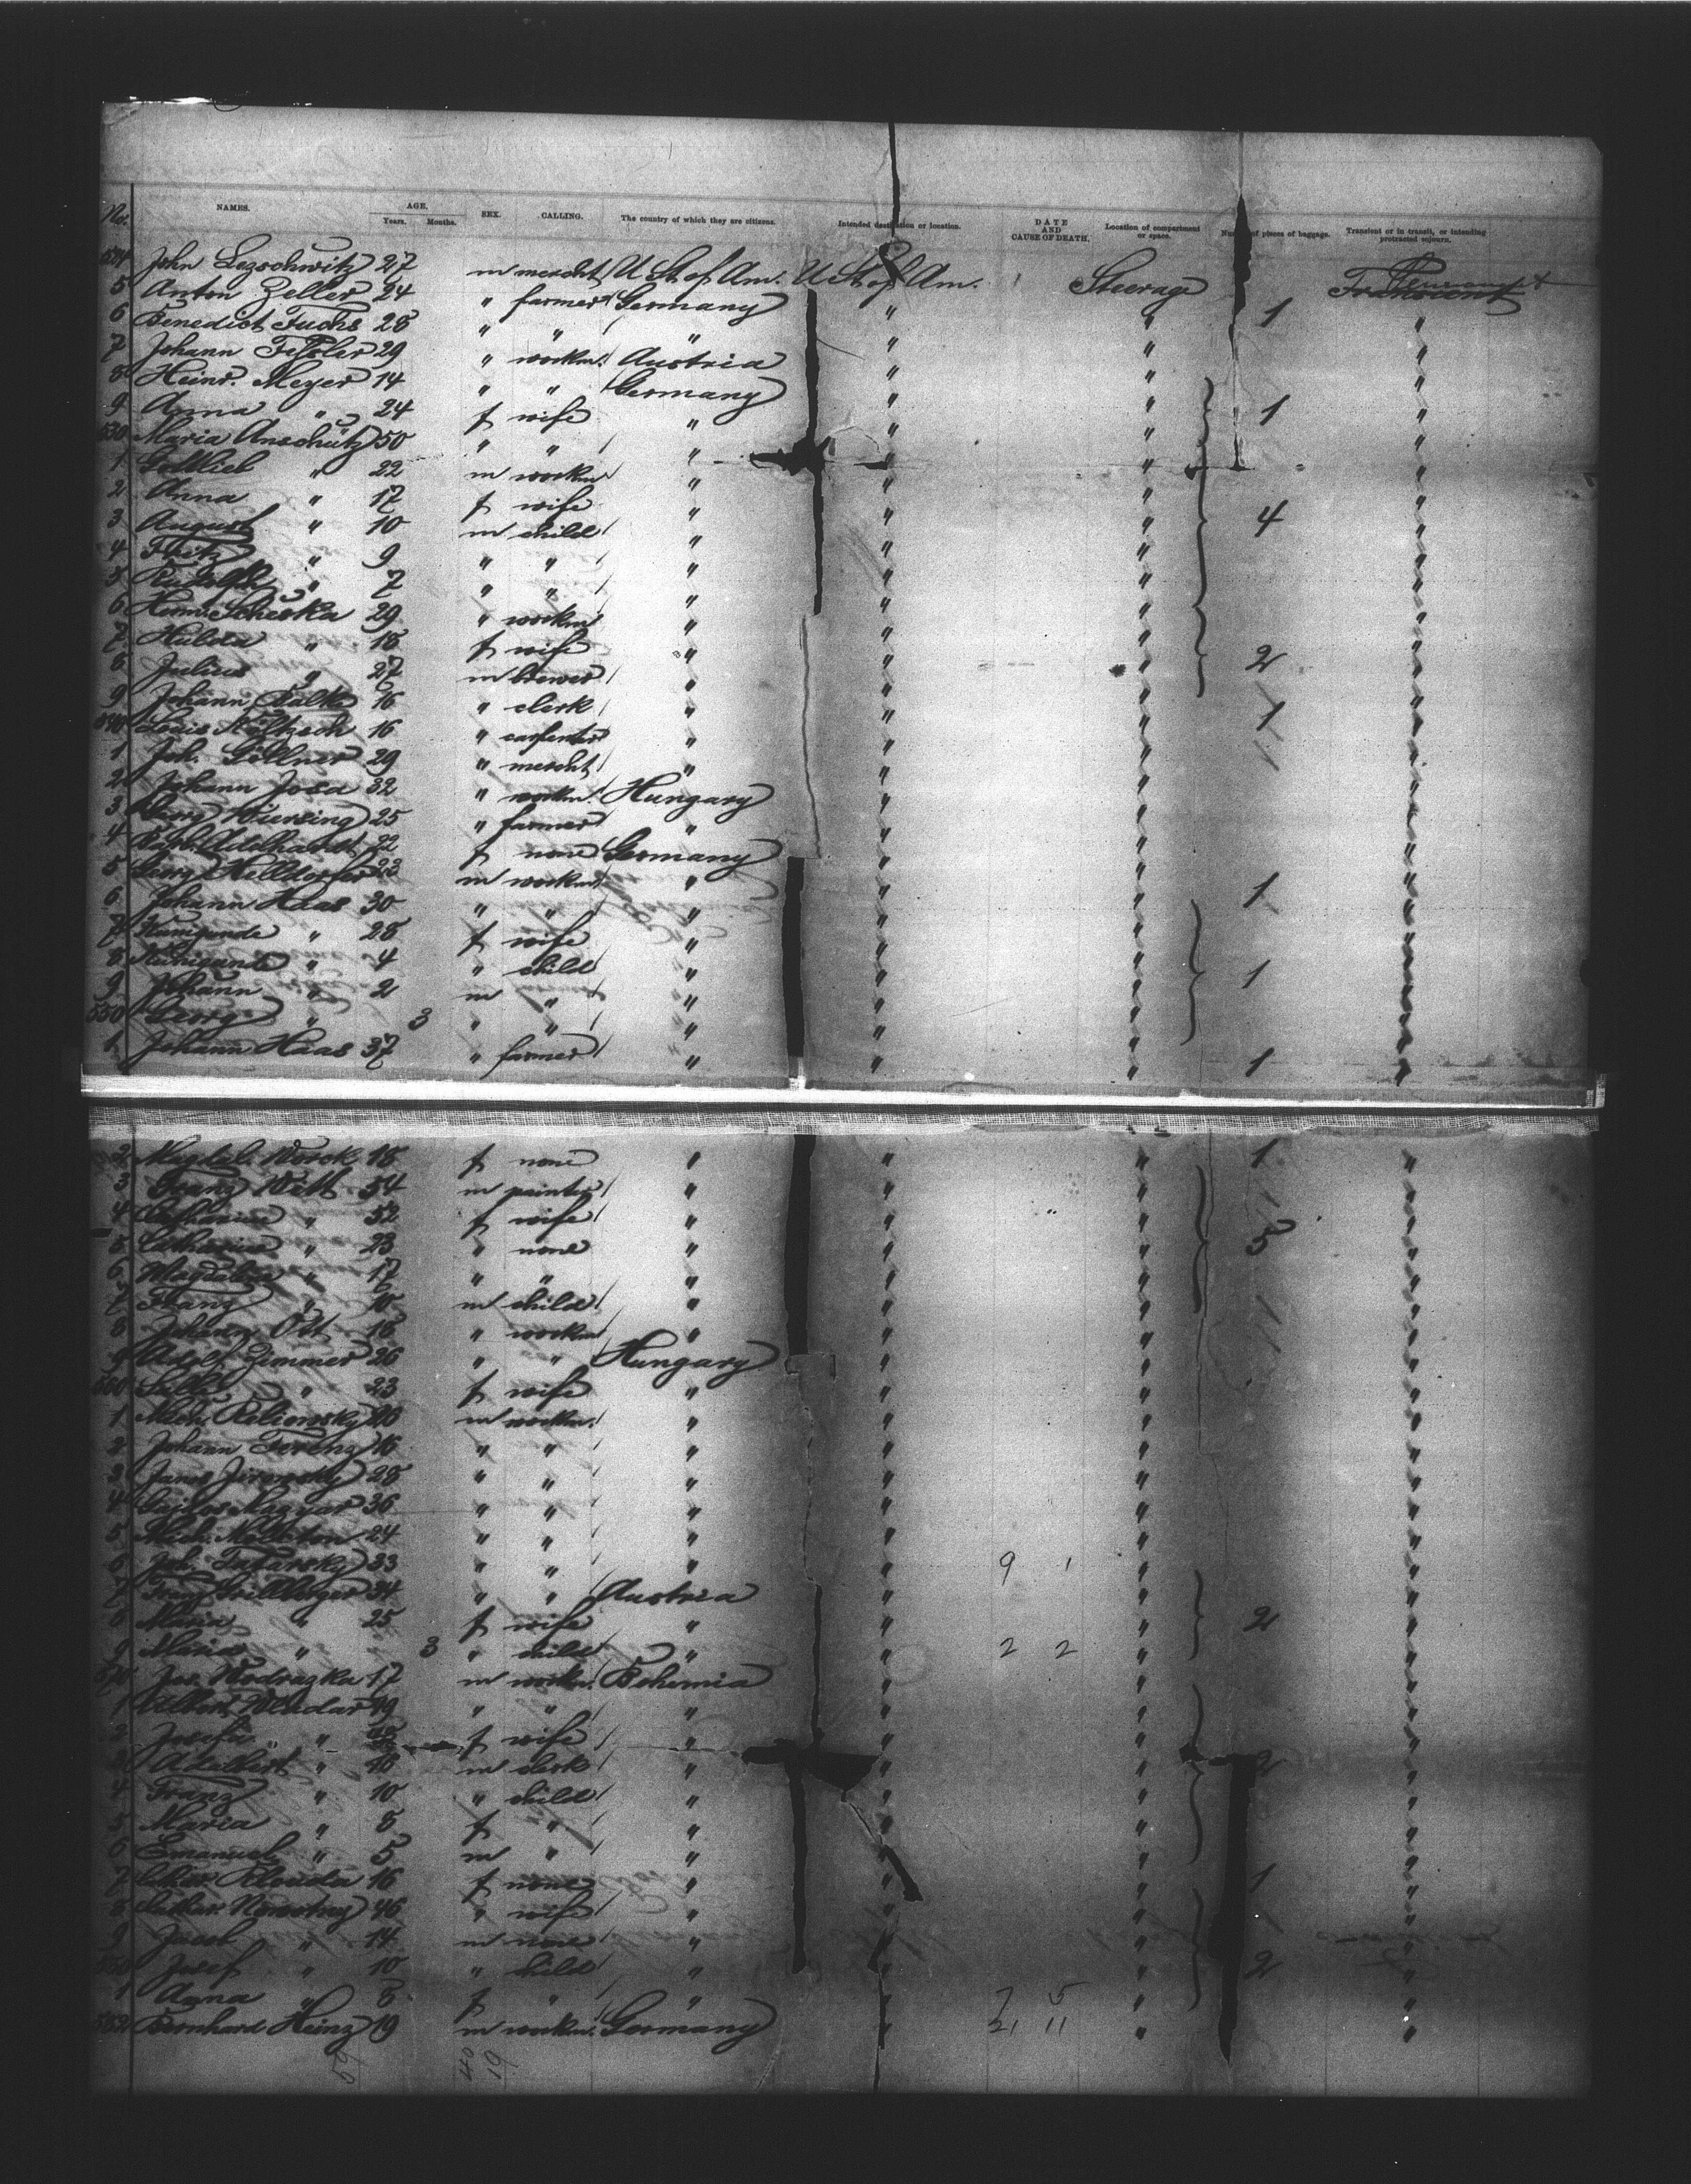 No. NAMES. AGE. Years. Months. SEX. CALLING. The country of which they are citizens. Intended destination or location. DATE AND CAUSE OF DEATH. Location of compartment or space. Number of pieces of baggage. Transient or in transit, or intending protracted sojourn.
524 John Lezschwitz 27 m mercht U St of Am. U St of Am. Steerage Transient
5 Anton Zeller 24 " farmer Germany " " 1 "
6 Benedict Fuchs 28 " " " " " "
7 Johann Feßler 29 " workm. Austria " " "
8 Heinr. Meyer 14 " " Germany " " "
9 Anna " 24 f wife " " " 1 "
530 Maria Anschütz 50 " " " " " "
1 Gottlieb " 22 m workm " " " "
2 Anna " 17 f wife " " " "
3 August " 10 m child " " " 4 "
4 Fritz " 9 " " " " " "
5 Rudolph " 7 " " " " " "
6 Scheska 29 " workm " " " "
7 Hulda " 18 f wife " " " "
8 Julius " 27 m brewer " " " 2 "
9 Johann Falke 16 " clerk " " " "
540 Louis Költzsch 16 " carpenter " " " 1 "
1 Joh. Göllner 29 " mercht " " " "
2 Johann Josa 32 " workm. Hungary " " "
3 Georg Wiersing 25 " farmer " " " "
4 Adelhardt 22 f none Germany " " "
5 Georg Helldorfer 23 m workm " " " "
6 Johann Haas 30 " " " " " 1 "
7 Kunigunde " 28 f wife " " " "
8 Kunigunde " 4 " child " " " "
9 Johann " 2 m " " " " 1 "
550 Georg " 3 " " " " " "
1 Johann Haas 37 " farmer " " " 1 "
2 Magdal. Worck 18 f none " " " 1 "
3 Franz Witt 54 m painter " " " "
4 Catharine " 52 f wife " " " "
5 Catharine " 23 " none " " " 5 "
6 Magdalena " 17 " " " " " "
7 Franz " 10 m child " " " "
8 Johann Ott 18 " workm " " " "
9 Adolf Zimmer 26 " " Hungary " " "
560 " 23 f wife " " " "
1 Mich. m workm. " " " "
2 Johann Ferenz 16 " " " " " "
3 28 " " " " " "
4 Magyar 36 " " " " " "
5 Mich. 24 " " " " " "
6 Joh. 33 " " " " 9 1 " "
7 Franz 34 " " Austria " " "
8 Maria " 25 f wife " " " 2 "
9 Maria " 3 " child " " 2 2 " "
570 Jos. Wodrazka 17 m workm. Bohemia " " "
1 Albert 49 " " " " " "
2 Josefa " f wife " " " "
3 Adalbert " 16 m clerk " " " 2 "
4 Franz " 10 " child " " " "
5 Maria " 8 f " " " " "
6 Emanuel " 5 m " " " " "
7 16 f none " " " 1 "
8 Cathar. 46 " wife " " " "
9 Jacob " 14 m none " " " "
580 Josef " 10 " child " " " 2 "
1 Anna " 8 f " " " 7 5 " "
582 Bernhard Heinz 19 m workm. Germany " 21 11 " "
40 19